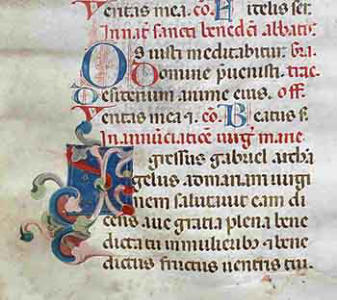 ueritas mea. co. Fidelis ser
In nat̄ sancti benedicti abbatis.
Os iusti meditabitur. Gra.
Domine p̄uenisti. trac.
Desiderium anime eius. off.
Veritas mea ⁊. co. Beatus s.
In annūciatiōe uirḡ marie
Ingressus gabriel archa
gelus ad mariam uirgi
nem salutauit eam di
cens aue gratia plena bene
dicta tu in mulieribȝ ⁊ bene
dictus fructus uentris tui.